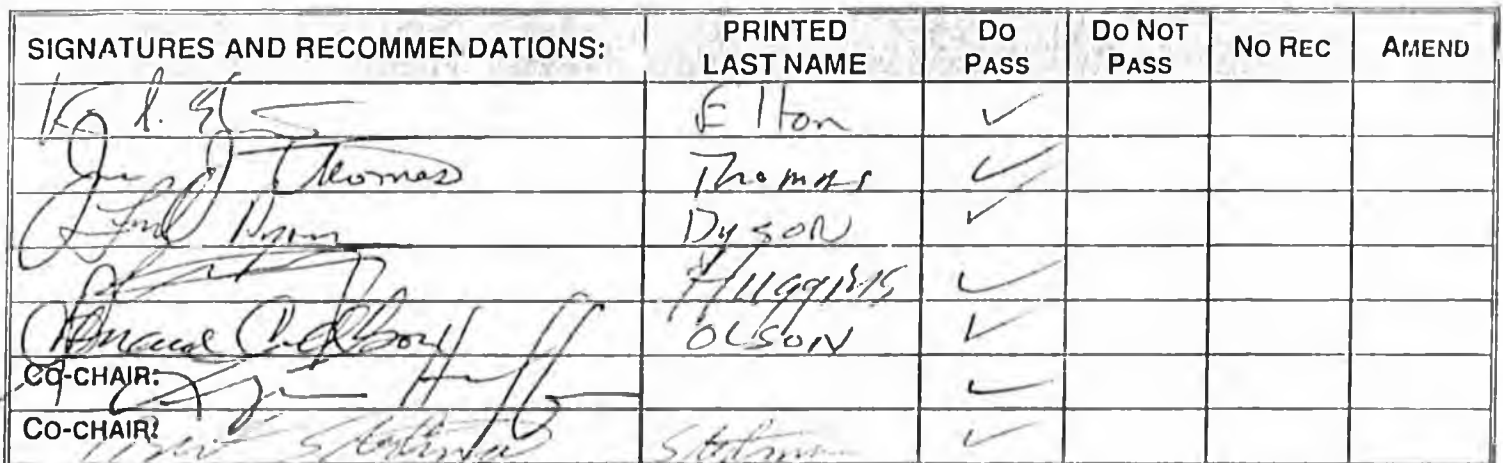 SIGNATURES AND RECOMMENDATIONS: PRINTED LAST NAME DO PASS DO NOT PASS NO REC AMEND
Elton ✓
Thomas Thomas ✓
Dyson Dyson ✓
Huggins ✓
Olson OLSON ✓
CO-CHAIR: ✓
CO-CHAIR: Stedman Stedman ✓